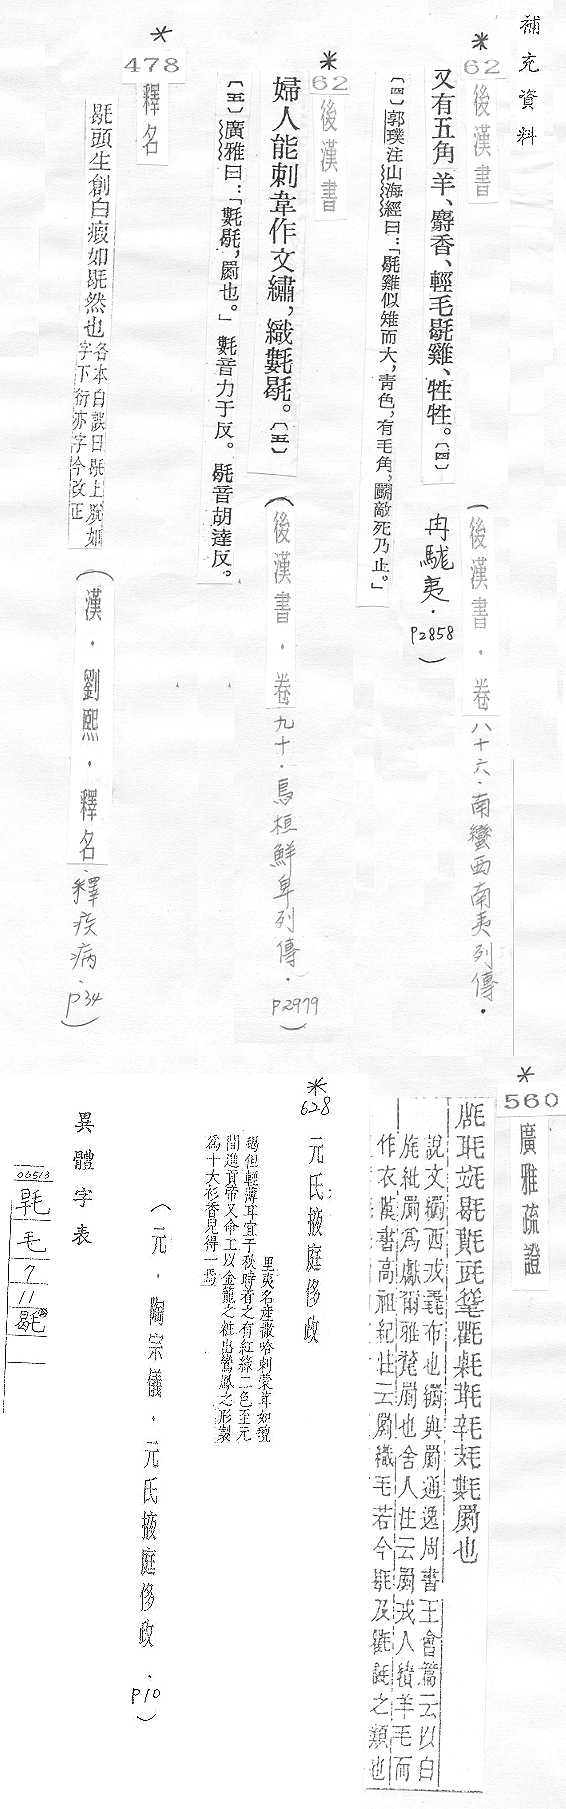 補充資料
*
62
後漢書
又有五角羊、麝香、輕毛毼雞、牲牲。〔四〕
〔四〕郭璞注山海經曰：「毼雞似雉而大，青色，有毛角，鬬敵死乃止。」
（後漢書．卷八十六．南蠻西南夷列傳．
冉駹夷．
P2858）
*
62
後漢書
婦人能刺韋作文繡，織氀毼。〔五〕
〔五〕廣雅曰：「氀毼，罽也。」氀音力于反。毼音胡達反。
（後漢書．卷九十．烏桓鮮卑列傳．
P2979）
*
478
釋名
毼頭生創白瘕如毼然也
各本白誤曰毼上脫如
字下衍亦字今改正
（漢．劉熙．釋名．釋疾病．P34）
*
560
廣雅疏證
罽也
說文𦇧西戎毳布也𦇧與罽通逸周書王會篇云以白
旄紕罽為獻爾雅氂罽也舍人注云罽戎人績羊毛而
作衣漢書高祖紀注云罽織毛若今毼及氍毹之類也
*
628
元氏掖庭侈政
里夷名產撒哈剌蒙茸如氊
毼但輕薄耳宜于秋時着之有紅綠二色至元
間進貢帝又命工以金籠之粧出鸞鳳之形製
為十大衫香兒得一焉
（元．陶宗儀．元氏掖庭侈政．P10）
異體字表
06513
毛
7
11
毼